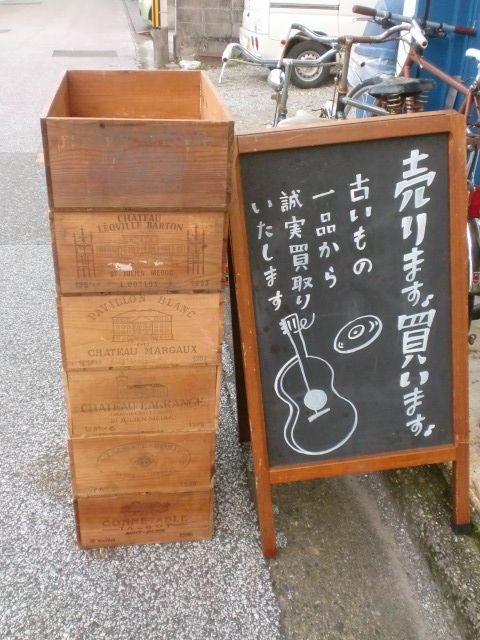 売ります。買います。
古いもの
一品から
誠実買取り
いたします
CHATEAU
LÉOVILLE BARTON
ST JULIEN-MÉDOC
PAVILLON BLANC
CHATEAU MARGAUX
CHATEAU LAGRANGE
CONNETABLE
TALBOT